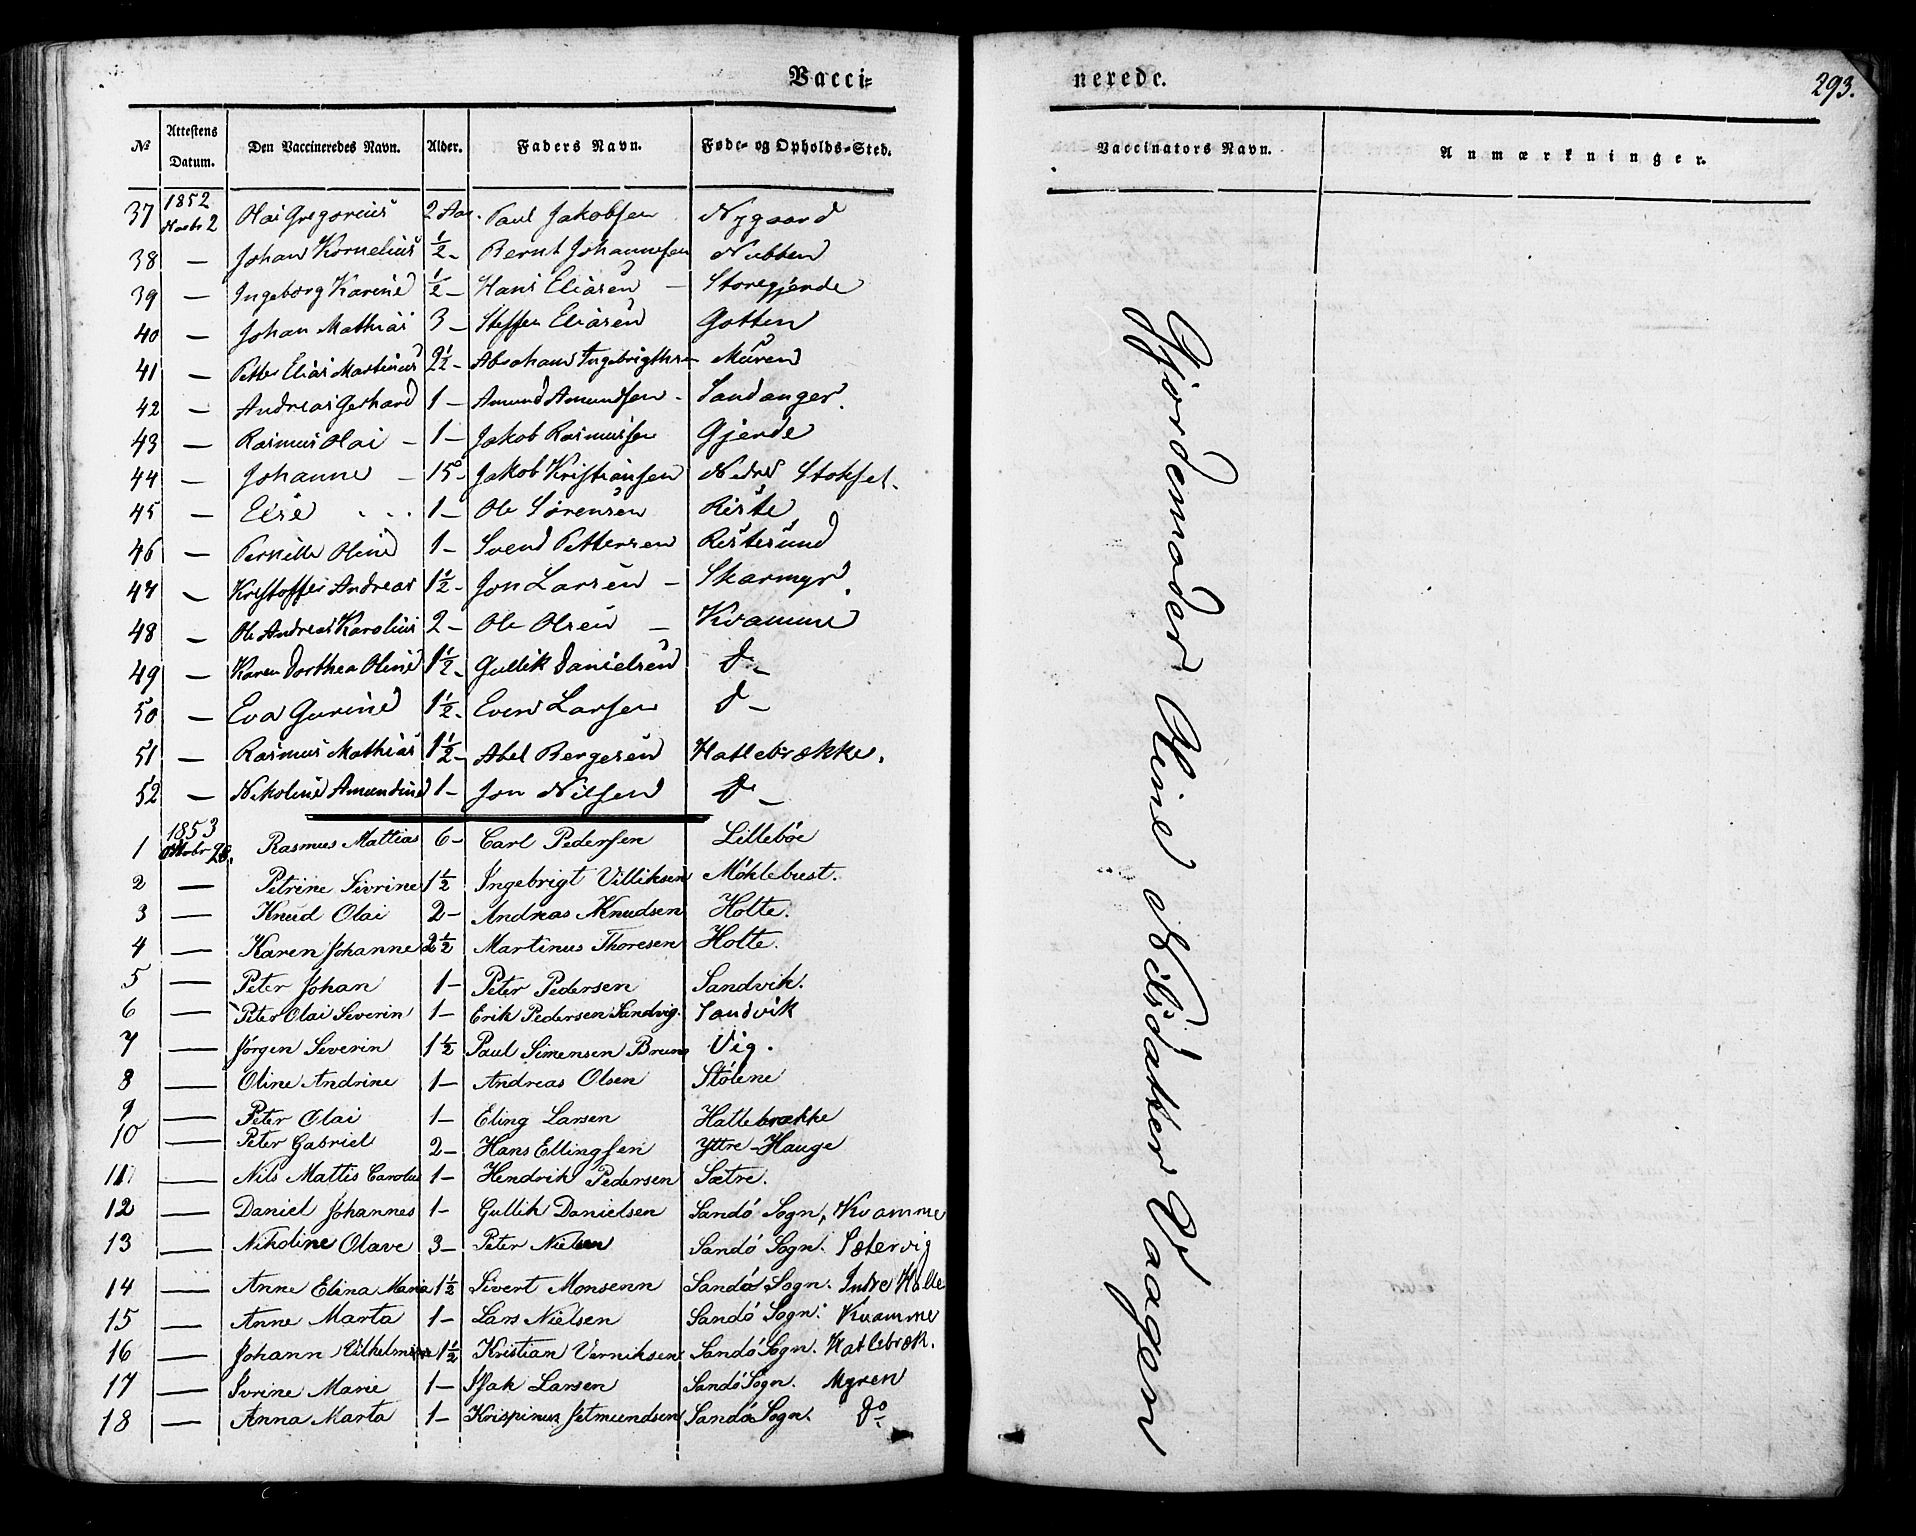 Vacci- nerede. 293.
№ Attestens Datum. Den Vaccineredes Navn. Alder. Faders Navn. Føde- og Opholds-Sted. Vaccinators Navn. Anmærkninger.
37 1852 2 Olai Gregorius 2 Aar. Paul Jakobsen Nygaard
38 — Johan Kornelius ½ - Bernt Johannesen Nubben
39 — Ingeborg Karine ½ — Hans Eliasen — Storegjerde
40 — Johan Mathias 3 — Steffen Eliasen Gotten
41 — Petter Elias Martinus 2½ - Abraham Ingebrigtsen Muren
42 — Andreas Gerhard 1 — Amund Amundsen - Sandanger.
43 — Rasmus Olai — 1 — Jakob Rasmussen Gjerde
44 — Johanne — 15 - Jakob Kristiansen Nedre Stokset.
45 — Elise . . . 1 — Ole Sørensen Riste
46 — Pernille Oline 1 — Svend Pettersen Ristesund
47 — Kristoffer Andreas 1½ - Jon Larsen — Skarmyr.
48 — Ole Andreas Karolius 2 — Ole Olsen — Kvamme
49 — Karen Dorthea Oline 1½ - Gullik Danielsen Do —
50 — Eva Gurine 1½ - Even Larsen Do —
51 — Rasmus Mathias 1½ - Abel Bergesen Hatlebrække.
52 — Nikoline Amundine 1 - Jon Nilsen Do —
1 1853 Oktobr 26. Rasmus Mattias 6 - Carl Pedersen Lillebøe
2 — Petrine Sivrine 1½ Ingebrigt Villiksen Møhlebust.
3 — Knud Olai 2 - Andreas Knudsen Holte.
4 — Karen Johanne 2½ Martinus Thoresen Holte.
5 — Peter Johan 1 - Peter Pedersen Sandvik.
6 — Peter Olai Severin 1 - Erik Pedersen Sandvig. Sandvik
7 — Jørgen Severin 1½ Paul Simensen Bruns Vig.
8 — Oline Andrine 1 — Andreas Olsen Stølene
9 — Peter Olai 1 — Eling Larsen Hatlebrække
10 — Peter Gabriel 2 — Hans Ellingsen Yttre - Hauge
11 — Nils Mattis Carolus 1 — Hendrik Pedersen Sætre.
12 — Daniel Johannes 1 - Gullik Danielsen Sandø Sogn, Kvamme
13 — Nikoline Olave 3 — Peter Nielsen Sandø Sogn. Sætervig
14 — Anne Elina Maria 1½ Sivert Monsenn Sandø Sogn. Indre Halle
15 — Anne Marta 1 — Lars Nielsen Sandø Sogn. Kvamme
16 — Johann Vilhelmine 1½ Kristian Verniksen Sandø Sogn. Hatlebræk.
17 — Ivrine Marie 1 — Isak Larsen Sandø Sogn. Myren
18 — Anna Marta 1 — Krispinus Jetmundsen Sandø Sogn. Do
Gjordemoder Oline Nilsdatter Vaagen